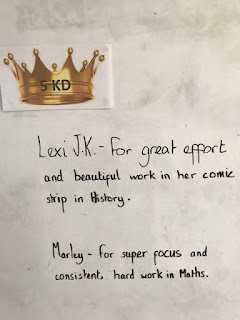 5 KD
Lexi J.K. - For great effort
and beautiful work in her comic
strip in History.
Marley - For super focus and
consistent, hard work in Maths.